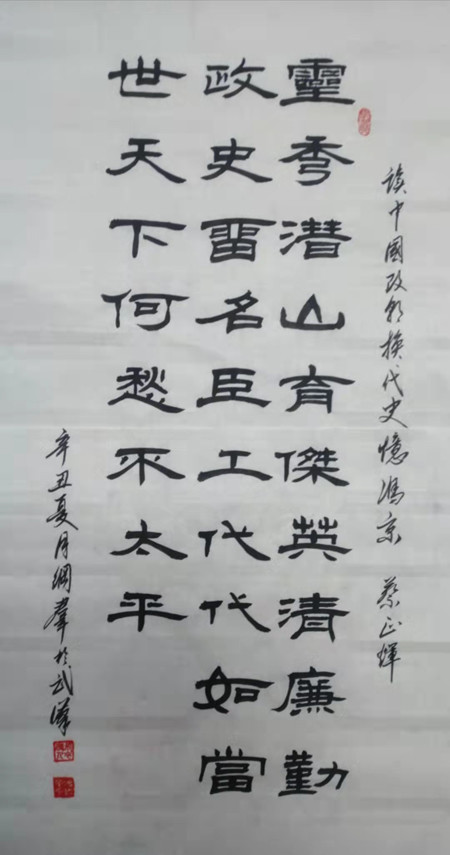 讀中國改朝換代史憶馮京 蔡正輝
靈秀潜山育傑英清廉勤
政史畱名臣工代代如當
世天下何愁不太平
辛丑夏月綱羣於武漢